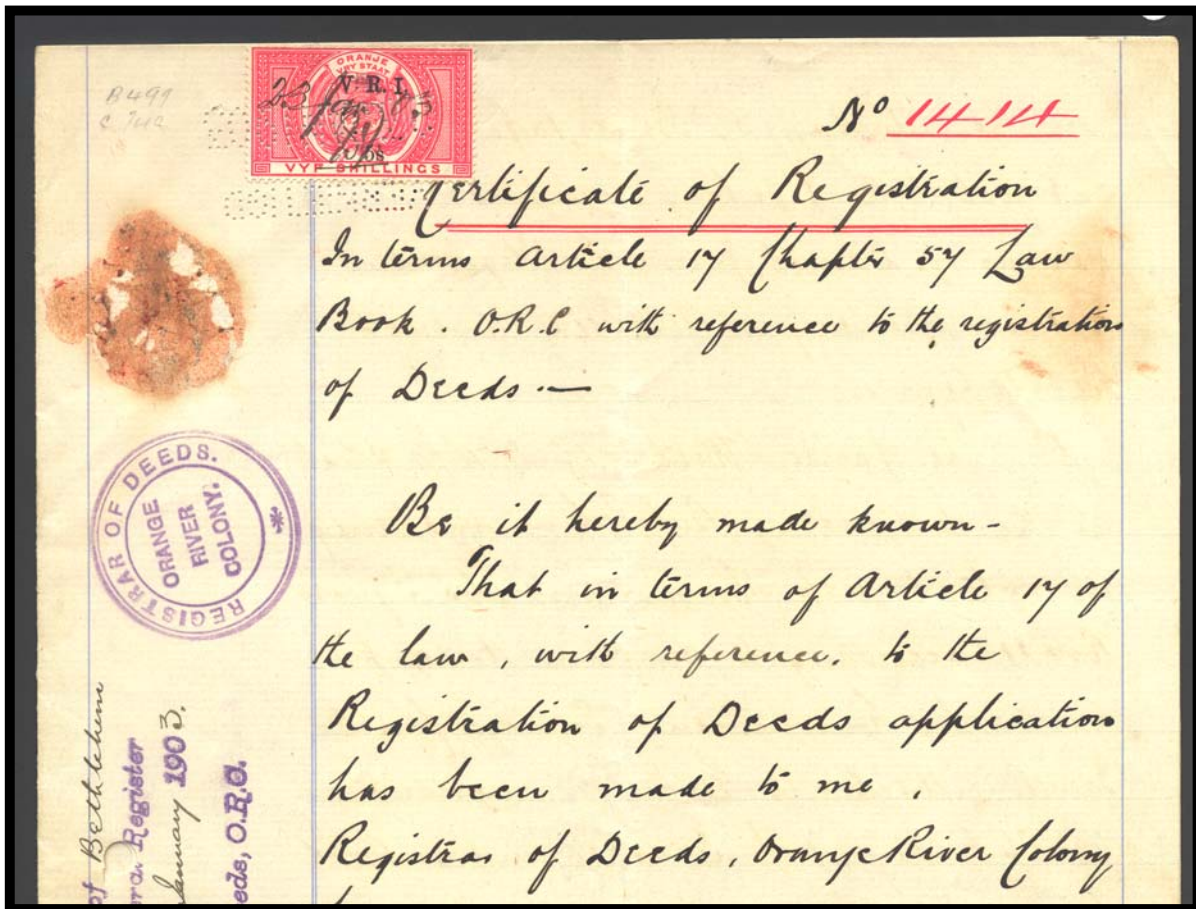 B499
ORANJE
VRY STAAT
V. R. I.
23
VYF SHILLINGS
Nº 1414
Certificate of Registration
In terms Article 17 Chapter 57 Law
Book. O.R.C with reference to the registration
of Deeds.—
REGISTRAR OF DEEDS.
ORANGE
RIVER
COLONY.
REGISTER
Be it hereby made known-
That in terms of Article 17 of
the law, with reference. to the
Registration of Deeds application
has been made to me,
Registrar of Deeds, Orange River Colony
of Bethlehem
Register
January 1903.
eeds, O.R.C.